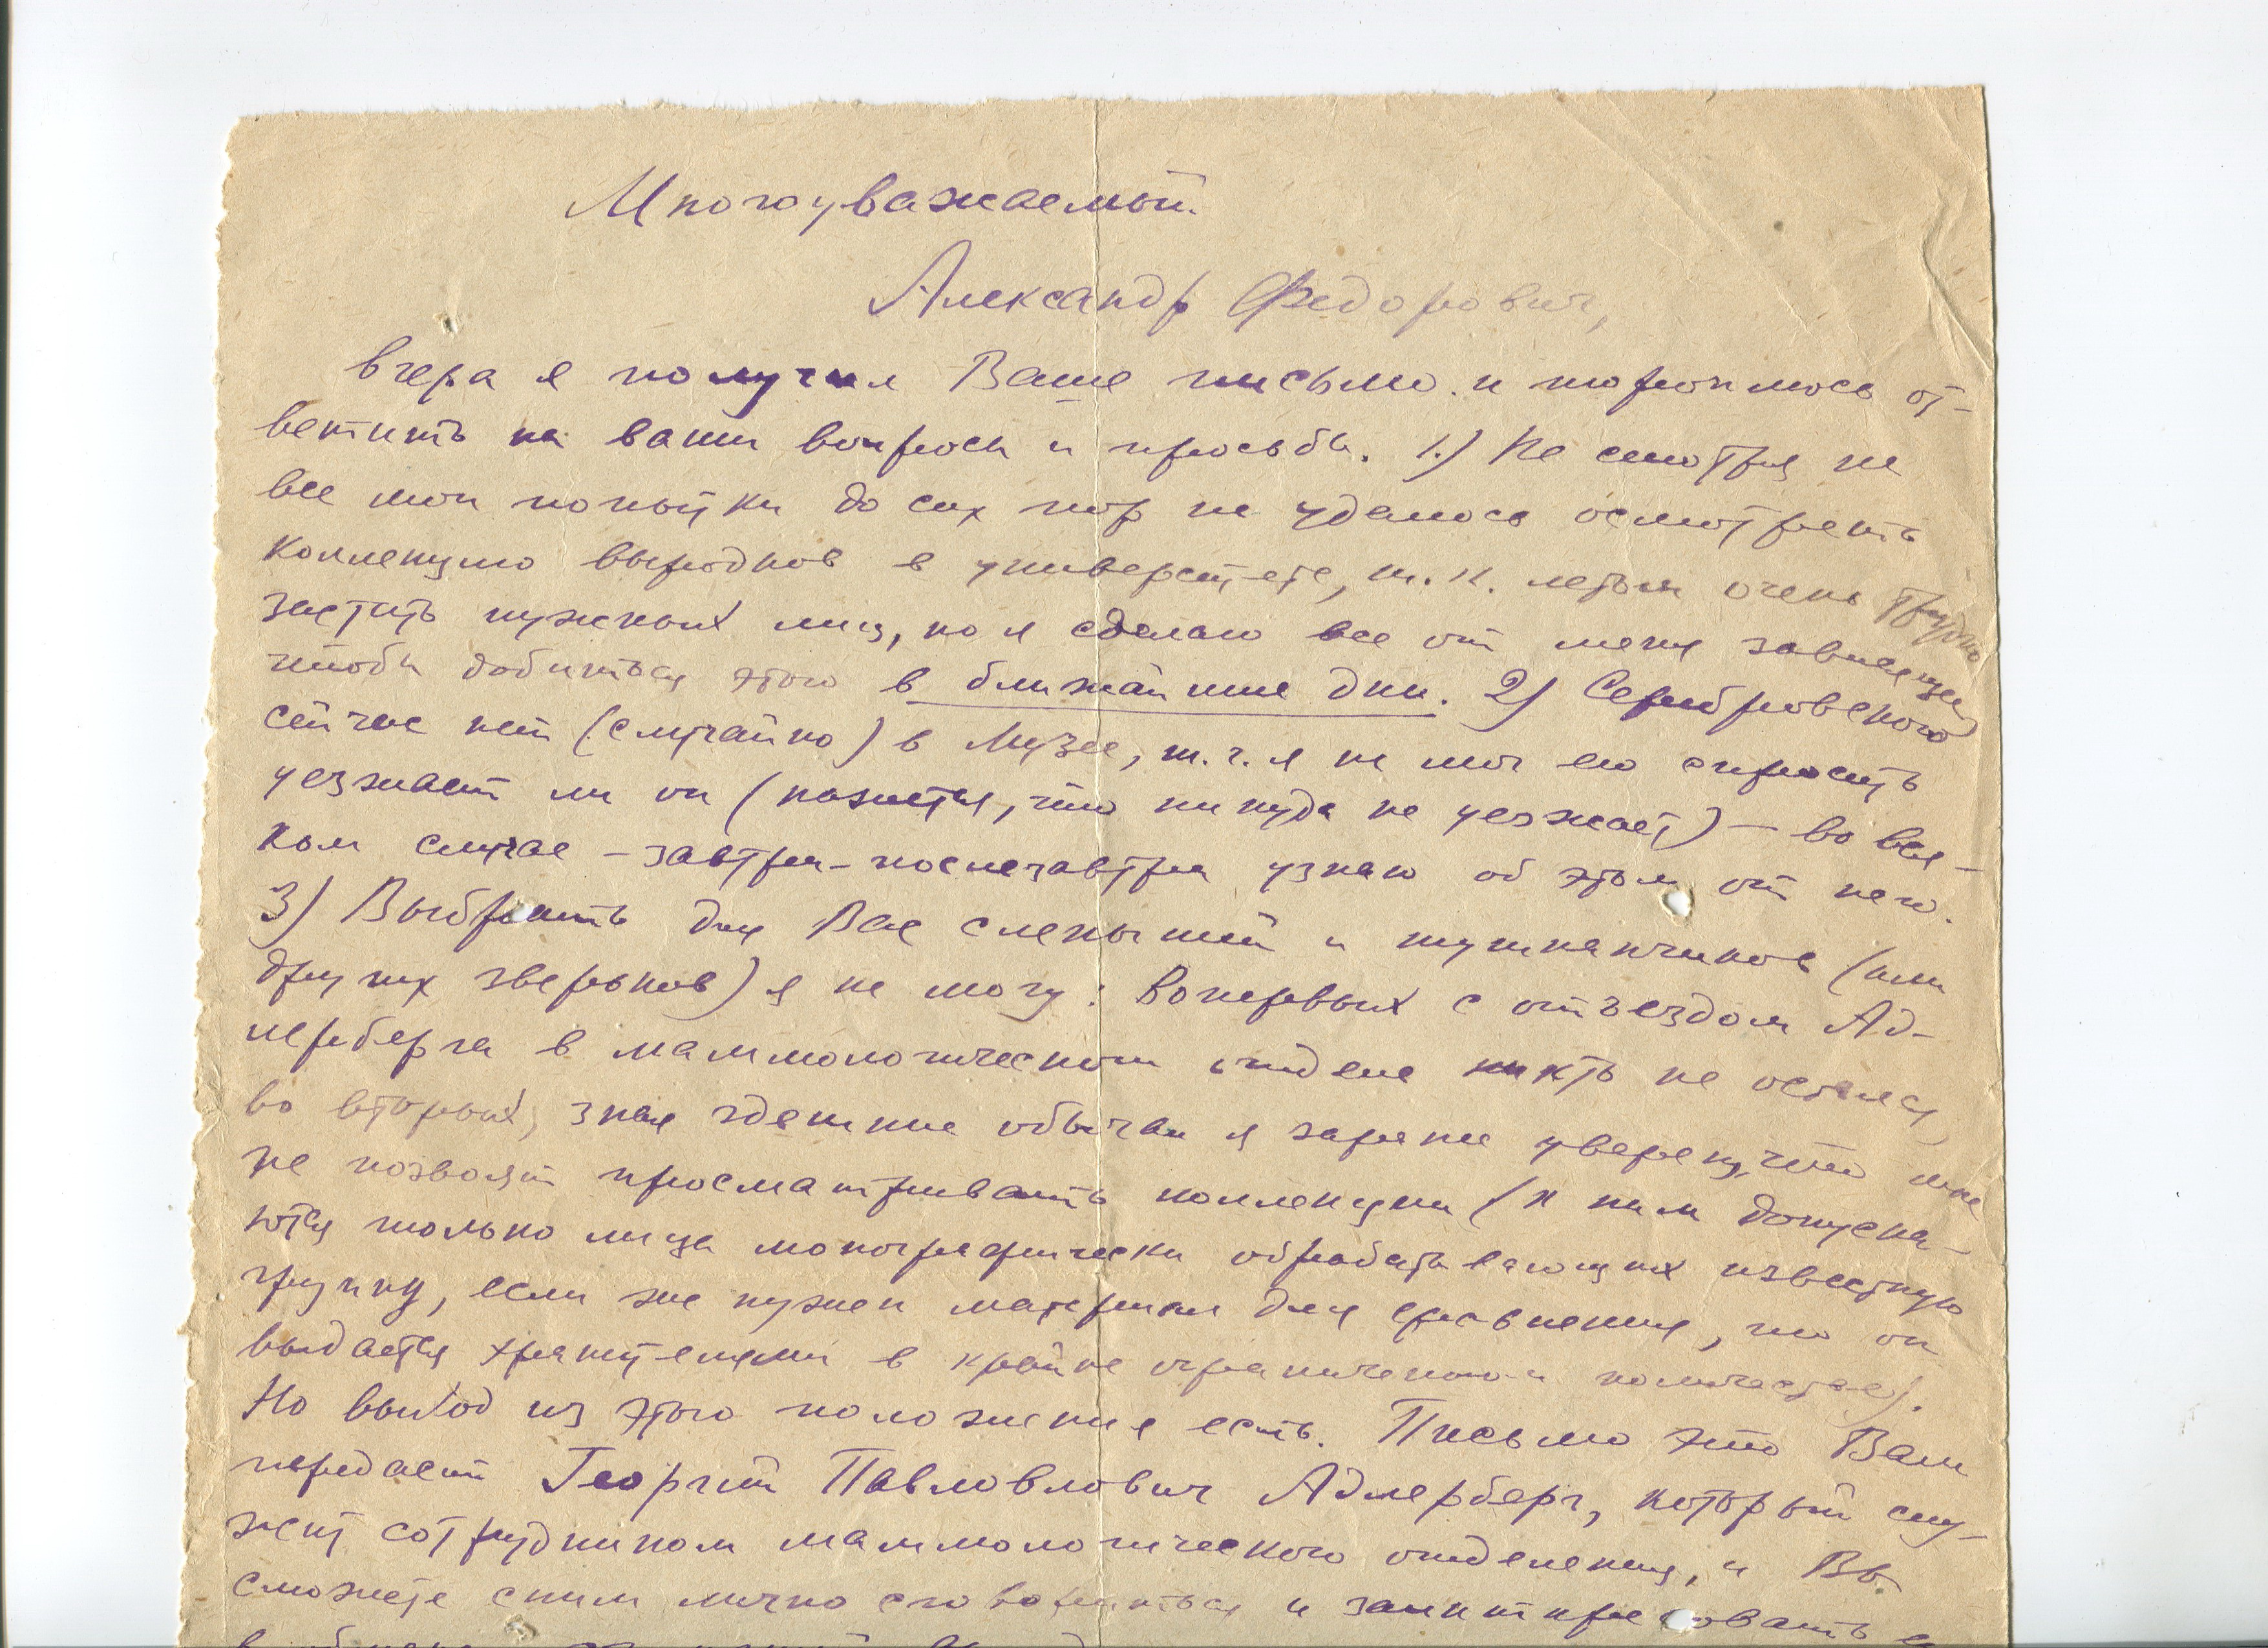 Многоуважаемый
Александр Федорович,
вчера я получил Ваше письмо и тороплюсь от-
ветить на ваши вопросы и просьбы. 1.) Не смотря на
все мои попытки до сих пор не удалось осмотреть
коллекцию выродков в университете, т.к. летом очень трудно
застать нужных лиц, но я сделаю все от меня зависящее
чтобы добиться этого в ближайшие дни. 2) Серебровского
сейчас нет (случайно) в Музее, т.ч. я не мог его спросить
уезжает ли он (кажется, что никуда не уезжает) — во вся-
ком случае – завтра – послезавтра узнаю об этом от него.
3) Выбрать для Вас слепышей и тушканчиков (или
других зверьков) я не могу: Вопервых с отъездом Ад-
лерберга в маммологическом отделе никто не остался,
во вторых, зная здешние обычаи я заранее уверен, что мне
не позволят просматривать коллекции (к ним допуска-
ются только лица монографически обрабатывающих известную
группу, если же нужен материал для сравнения, то он
выдается хранителями в крайне ограниченном количестве).
Но выход из этого положения есть. Письмо это Вам
передаст Георгий Павлович Адлерберг, который слу-
жит сотрудником маммологического отделения, и Вы
сможете с ним лично сговориться и заинтересовать